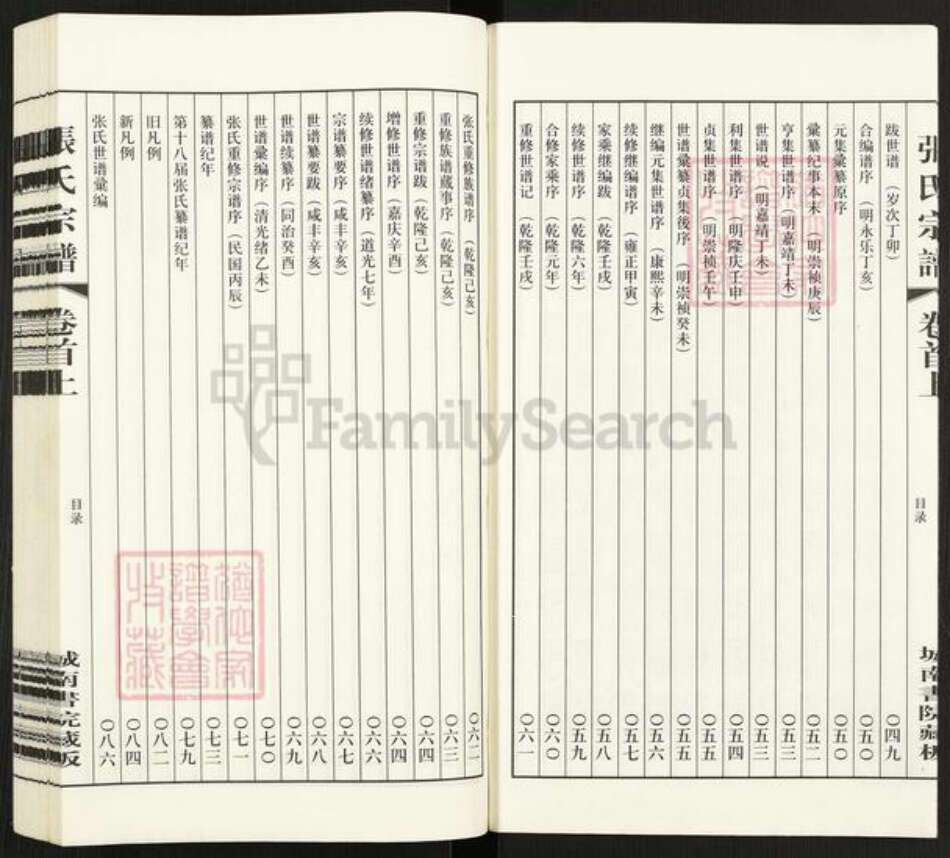 張氏宗譜
卷首上
目录
城南書院藏板
跋世谱 （岁次丁卯） 〇四九
合编谱序 （明永乐丁亥） 〇五〇
元集彙纂原序 〇五〇
彙纂纪事本末 （明崇祯庚辰） 〇五二
亨集世谱序 （明嘉靖丁未） 〇五三
世谱说 （明嘉靖丁未） 〇五三
利集世谱序 （明隆庆壬申） 〇五四
贞集世谱序 （明崇祯壬午） 〇五五
世谱彙纂贞集後序 （明崇祯癸未） 〇五五
继编元集世谱序 （康熙辛未） 〇五六
续修继编谱序 （雍正甲寅） 〇五七
家乘继编跋 （乾隆壬戌） 〇五八
续修世谱序 （乾隆六年） 〇五九
合修家乘序 （乾隆元年） 〇六〇
重修世谱记 （乾隆壬戌） 〇六一
张氏重修族谱序 （乾隆己亥） 〇六二
重修族谱蒇事序 （乾隆己亥） 〇六三
重修宗谱跋 （乾隆己亥） 〇六四
增修世谱序 （嘉庆辛酉） 〇六四
续修世谱绪纂序 （道光七年） 〇六六
宗谱纂要序 （咸丰辛亥） 〇六七
世谱纂要跋 （咸丰辛亥） 〇六八
世谱续纂序 （同治癸酉） 〇六九
世谱彙编序 （清光绪乙未） 〇七〇
张氏重修宗谱序 （民国丙辰） 〇七一
纂谱纪年 〇七三
第十八届张氏纂谱纪年 〇七九
旧凡例 〇八二
新凡例 〇八四
张氏世谱彙编 〇八六
張氏宗譜
卷首上
目录
城南書院藏板
FamilySearch